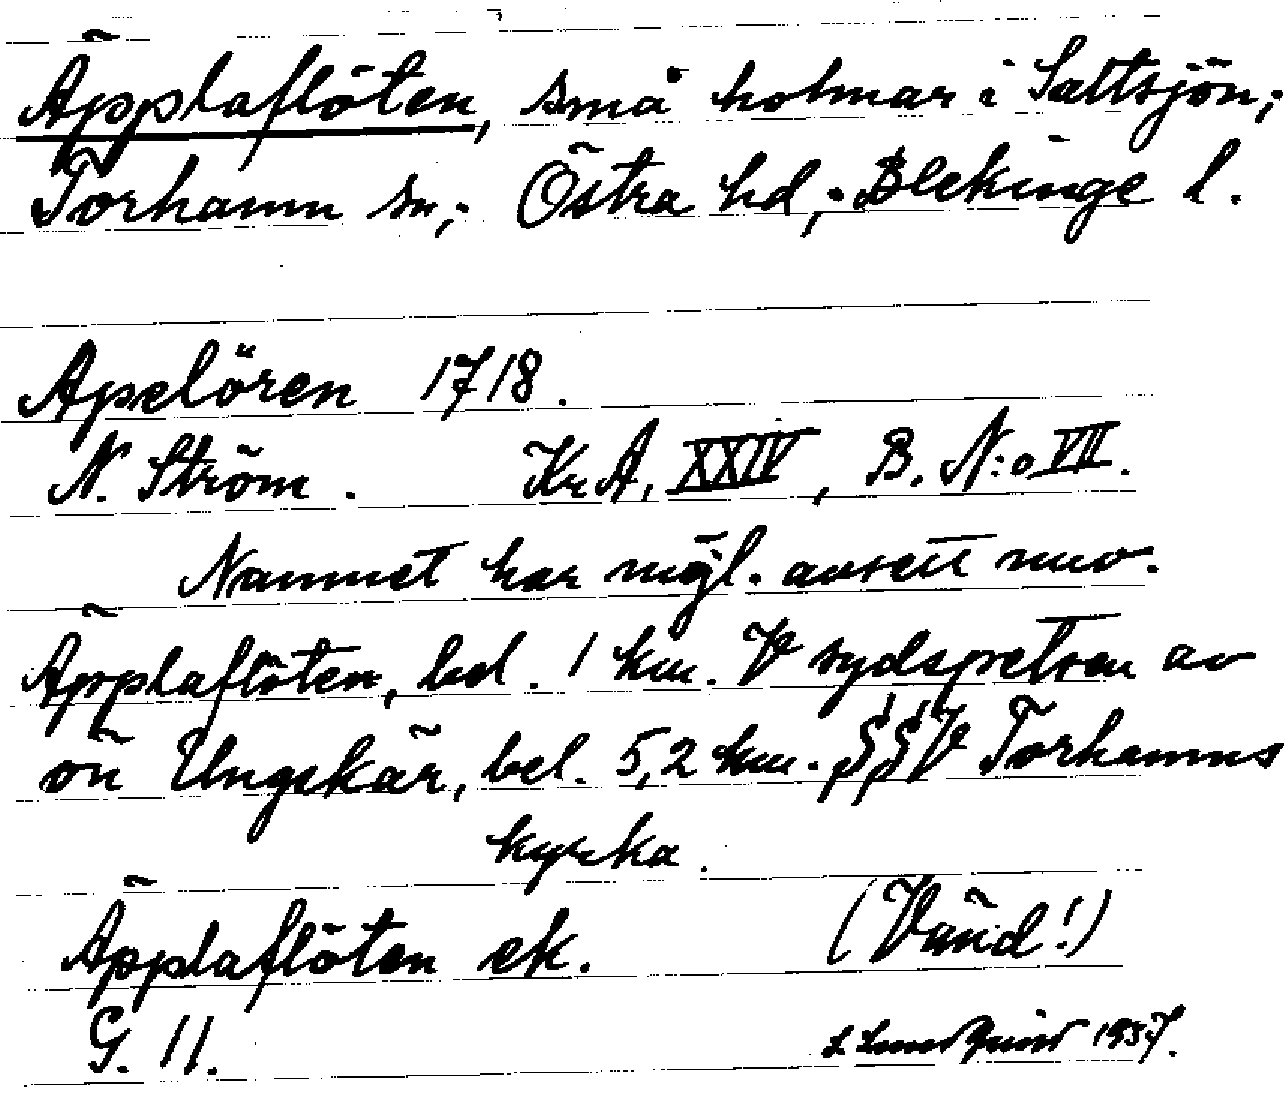 Äpplaflöten, små holmar i Saltsjön;
Torhamn sn,; Östra hd,; Blekinge l.
Apelören 1718.
N. Ström. Kr. A, XXIV, B. N:o VII.
Namnet har möjl. avsett nuv.
Äpplaflöten, bel. 1 km. V sydspetsen av
ön Ungskär, bel. 5,2 km. SSV Torhamns
kyrka.
Äpplaflöten ek. (Vänd!)
G. 11.
1937.